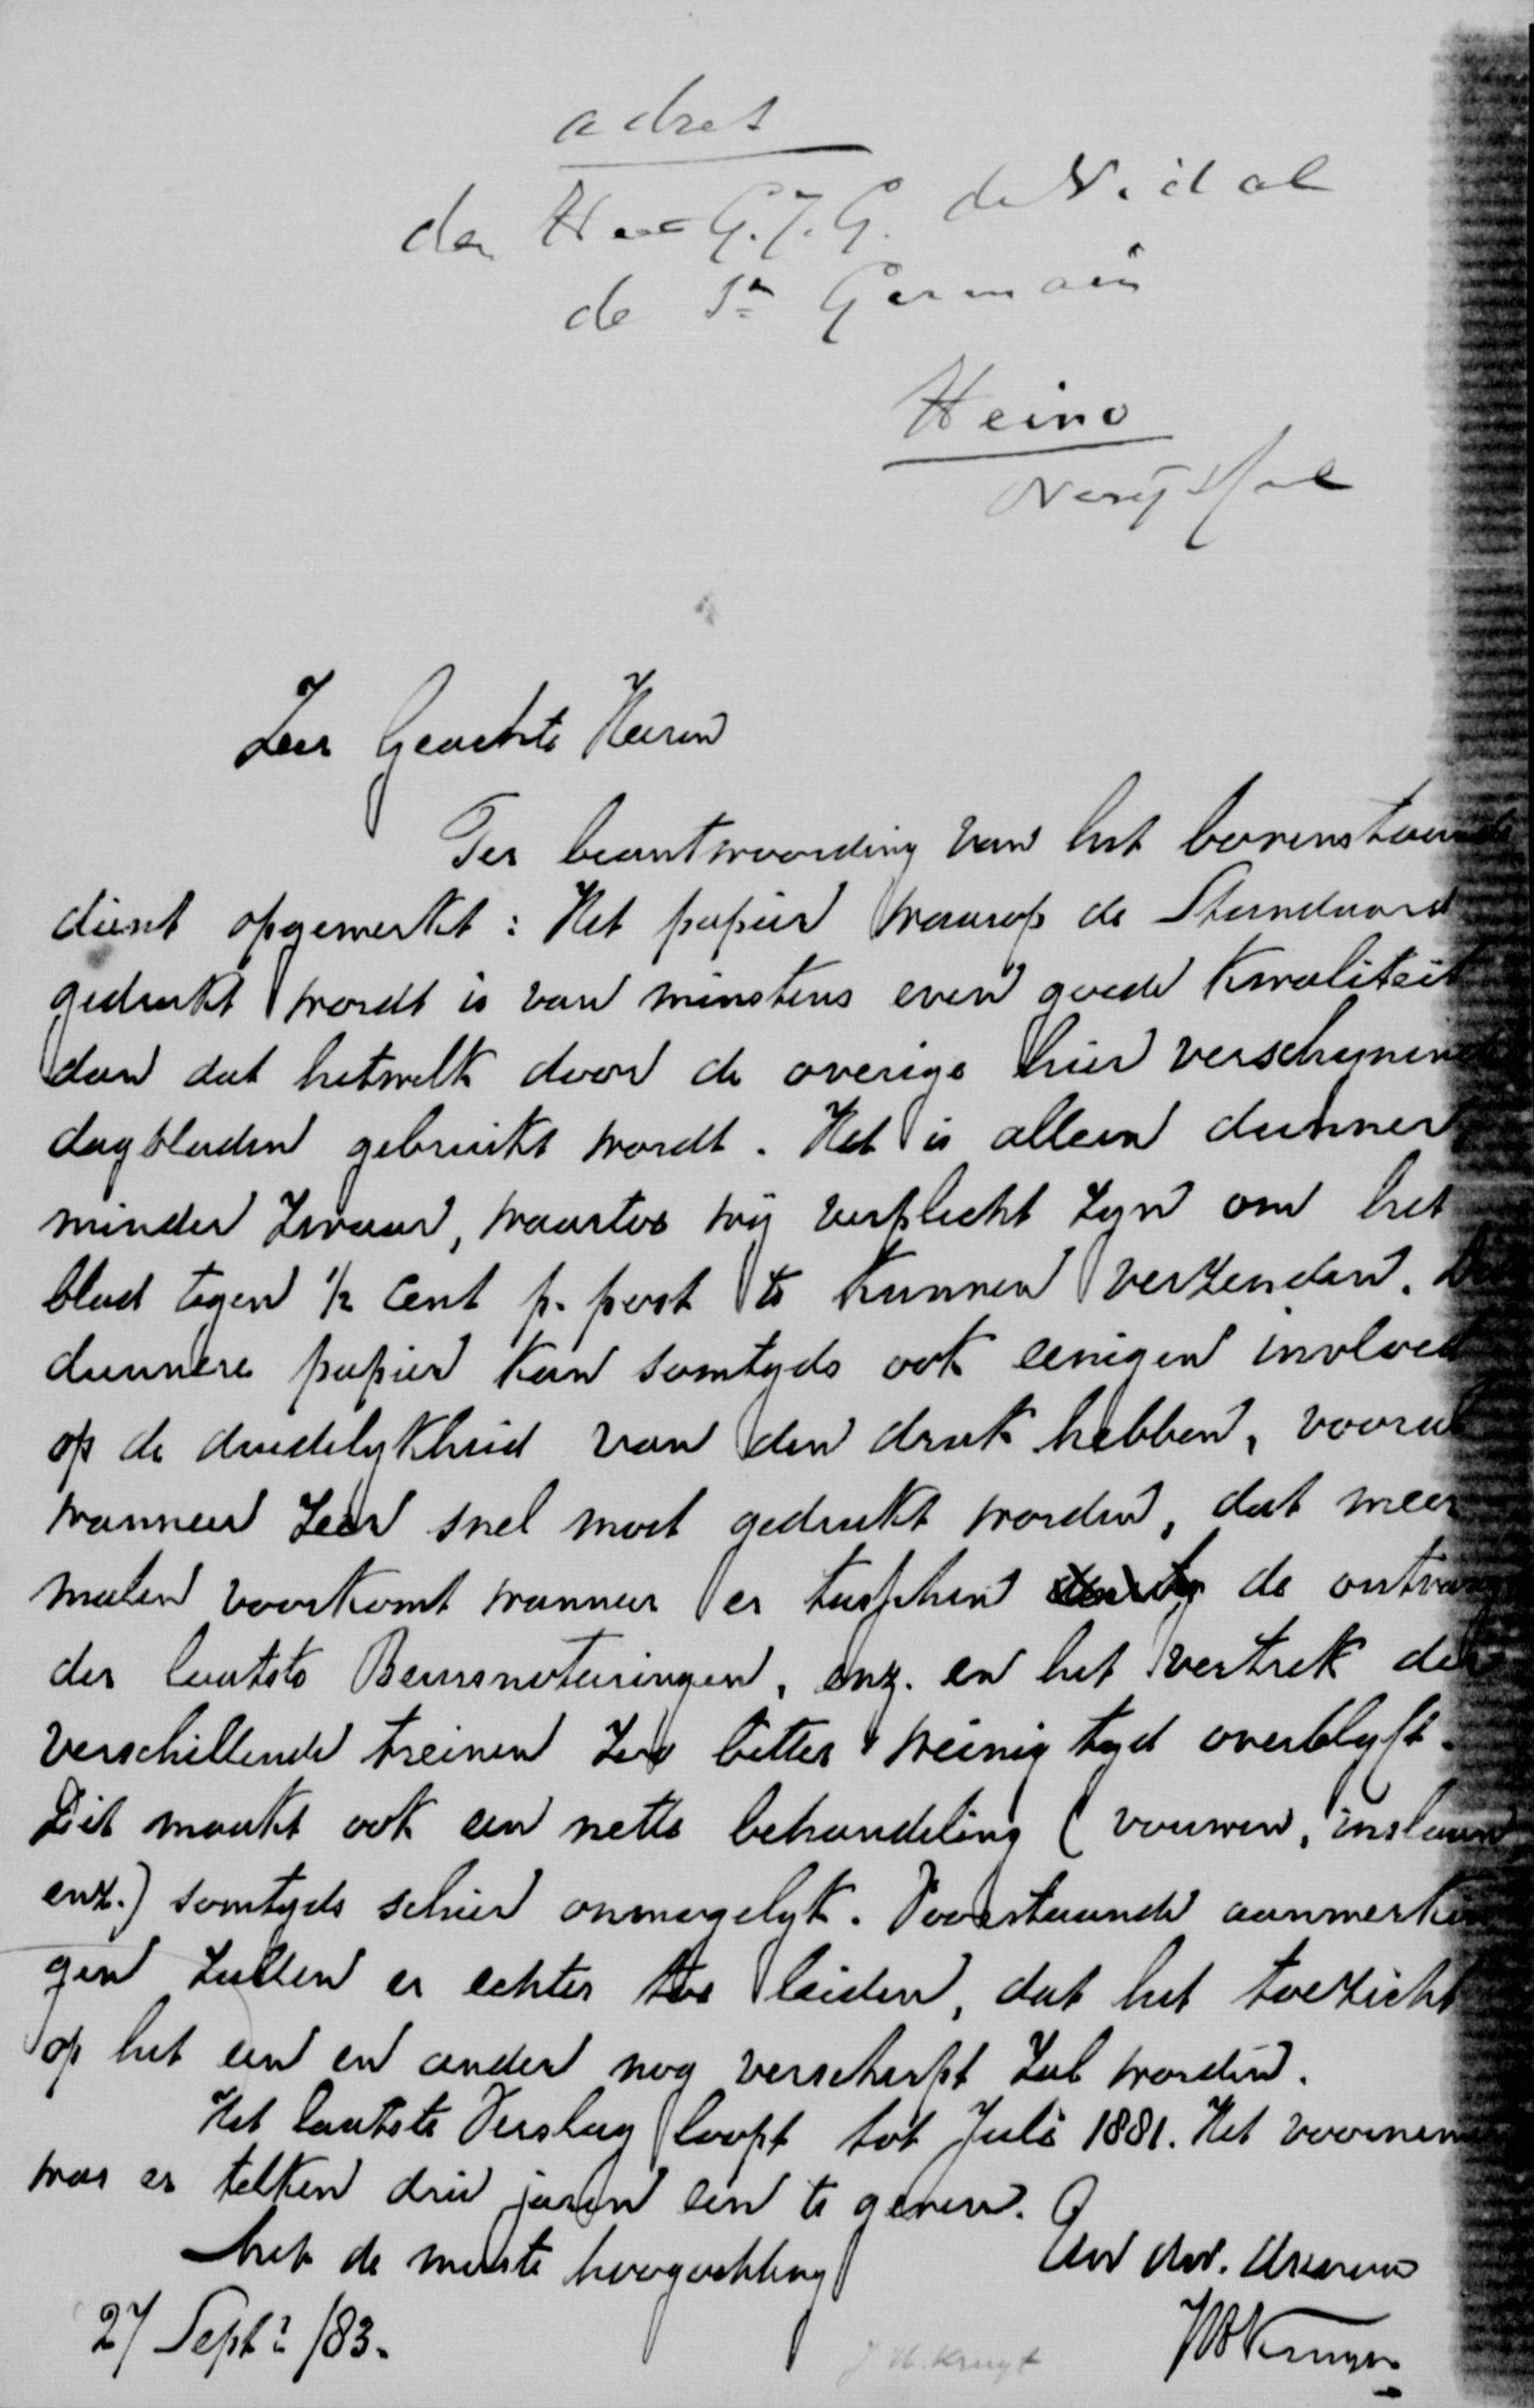 adres
den Heer G. J. G. de Vidal
de St Germain
Heino
Overijssel
Zeer Geachte Heeren
Ter beantwoording van het bovenstaande
dient opgemerkt: Het papier waarop de Standaard
gedrukt wordt is van minstens even goede kwaliteit
dan dat hetwelk door de overige hier verschijnende
dagbladen gebruikt wordt. Het is alleen dunner
minder zwaar, waartoe wij verplicht zijn om het
blad tegen 1/2 Cent p. post te kunnen verzenden.
dunnere papier kan somtyds ook eenigen invloed
op de duidelykheid van den druk hebben, vooral
wanneer zeer snel moet gedrukt worden, dat meer
malen voorkomt wanneer er tusschen de ontvangst
der laatste Beursnoteeringen, enz. en het vertrek der
verschillende treinen zeer bitter weinig tyd overblyft.
Dit maakt ook een nette behandeling (vouwen, inslaan
enz.) somtyds schier onmogelyk. Voorstaande aanmerkin
gen zullen er echter toe leiden, dat het toezicht
op het een en ander nog verscherpt zal worden.
Het laatste Verslag loopt tot Juli 1881. Het voornemen
was er telken drie jaren een te geven.
Met de meeste hoogachting
Uw dw. dienaar
27 Sept. /83.
J. H. Kruyt